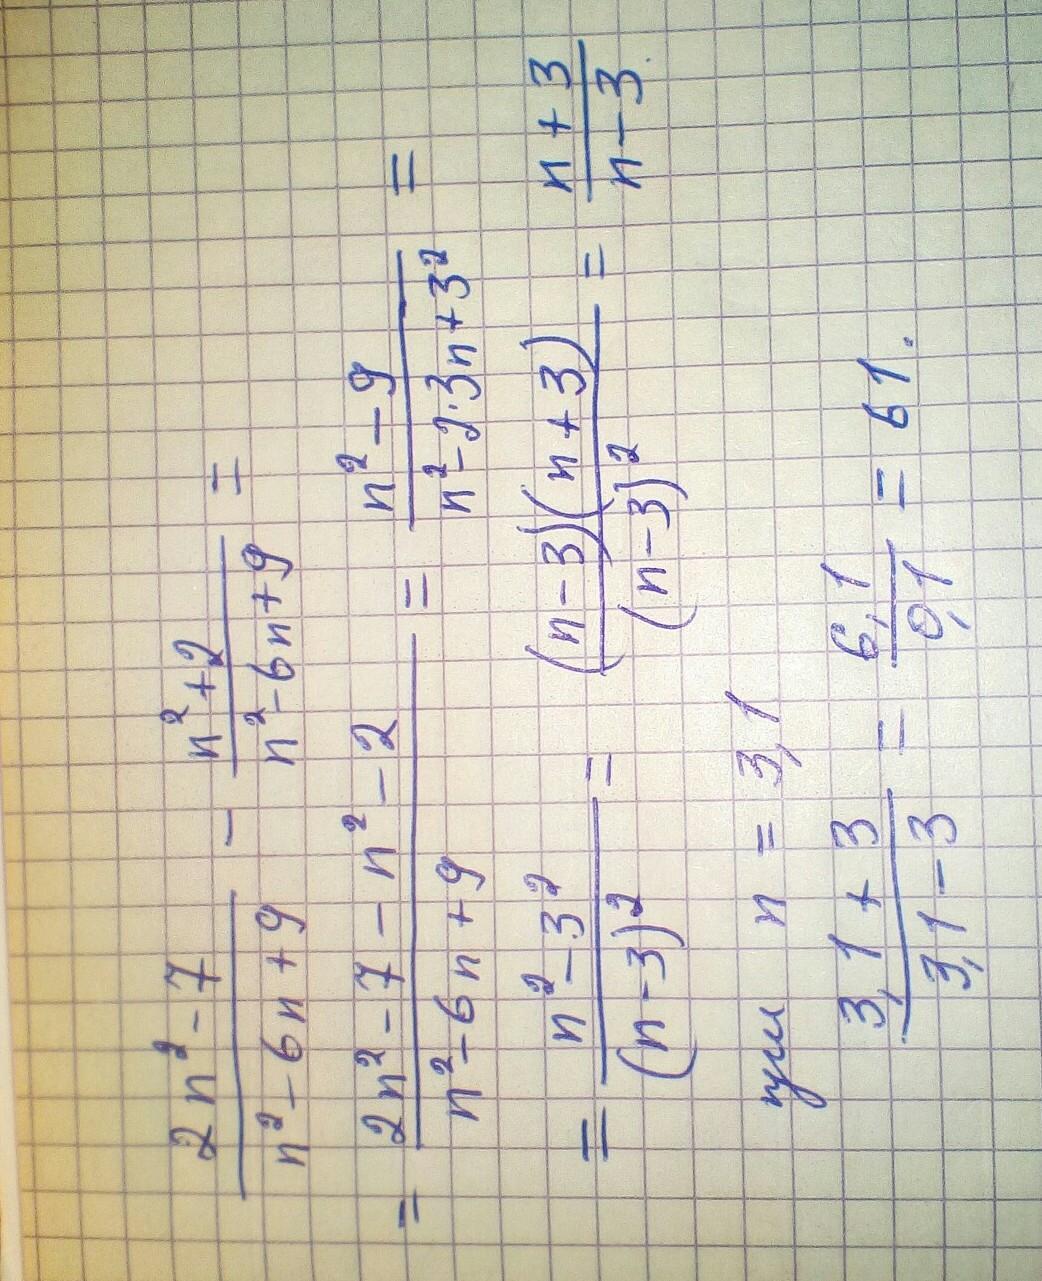 (2n² - 7)/(n² - 6n + 9) - (n² + 2)/(n² - 6n + 9) =
= (2n² - 7 - n² - 2)/(n² - 6n + 9) = (n² - 9)/(n² - 2·3n + 3²) =
= (n² - 3²)/(n - 3)² = (n - 3)(n + 3)/(n - 3)² = (n + 3)/(n - 3).
при n = 3,1
(3,1 + 3)/(3,1 - 3) = 6,1/0,1 = 61.